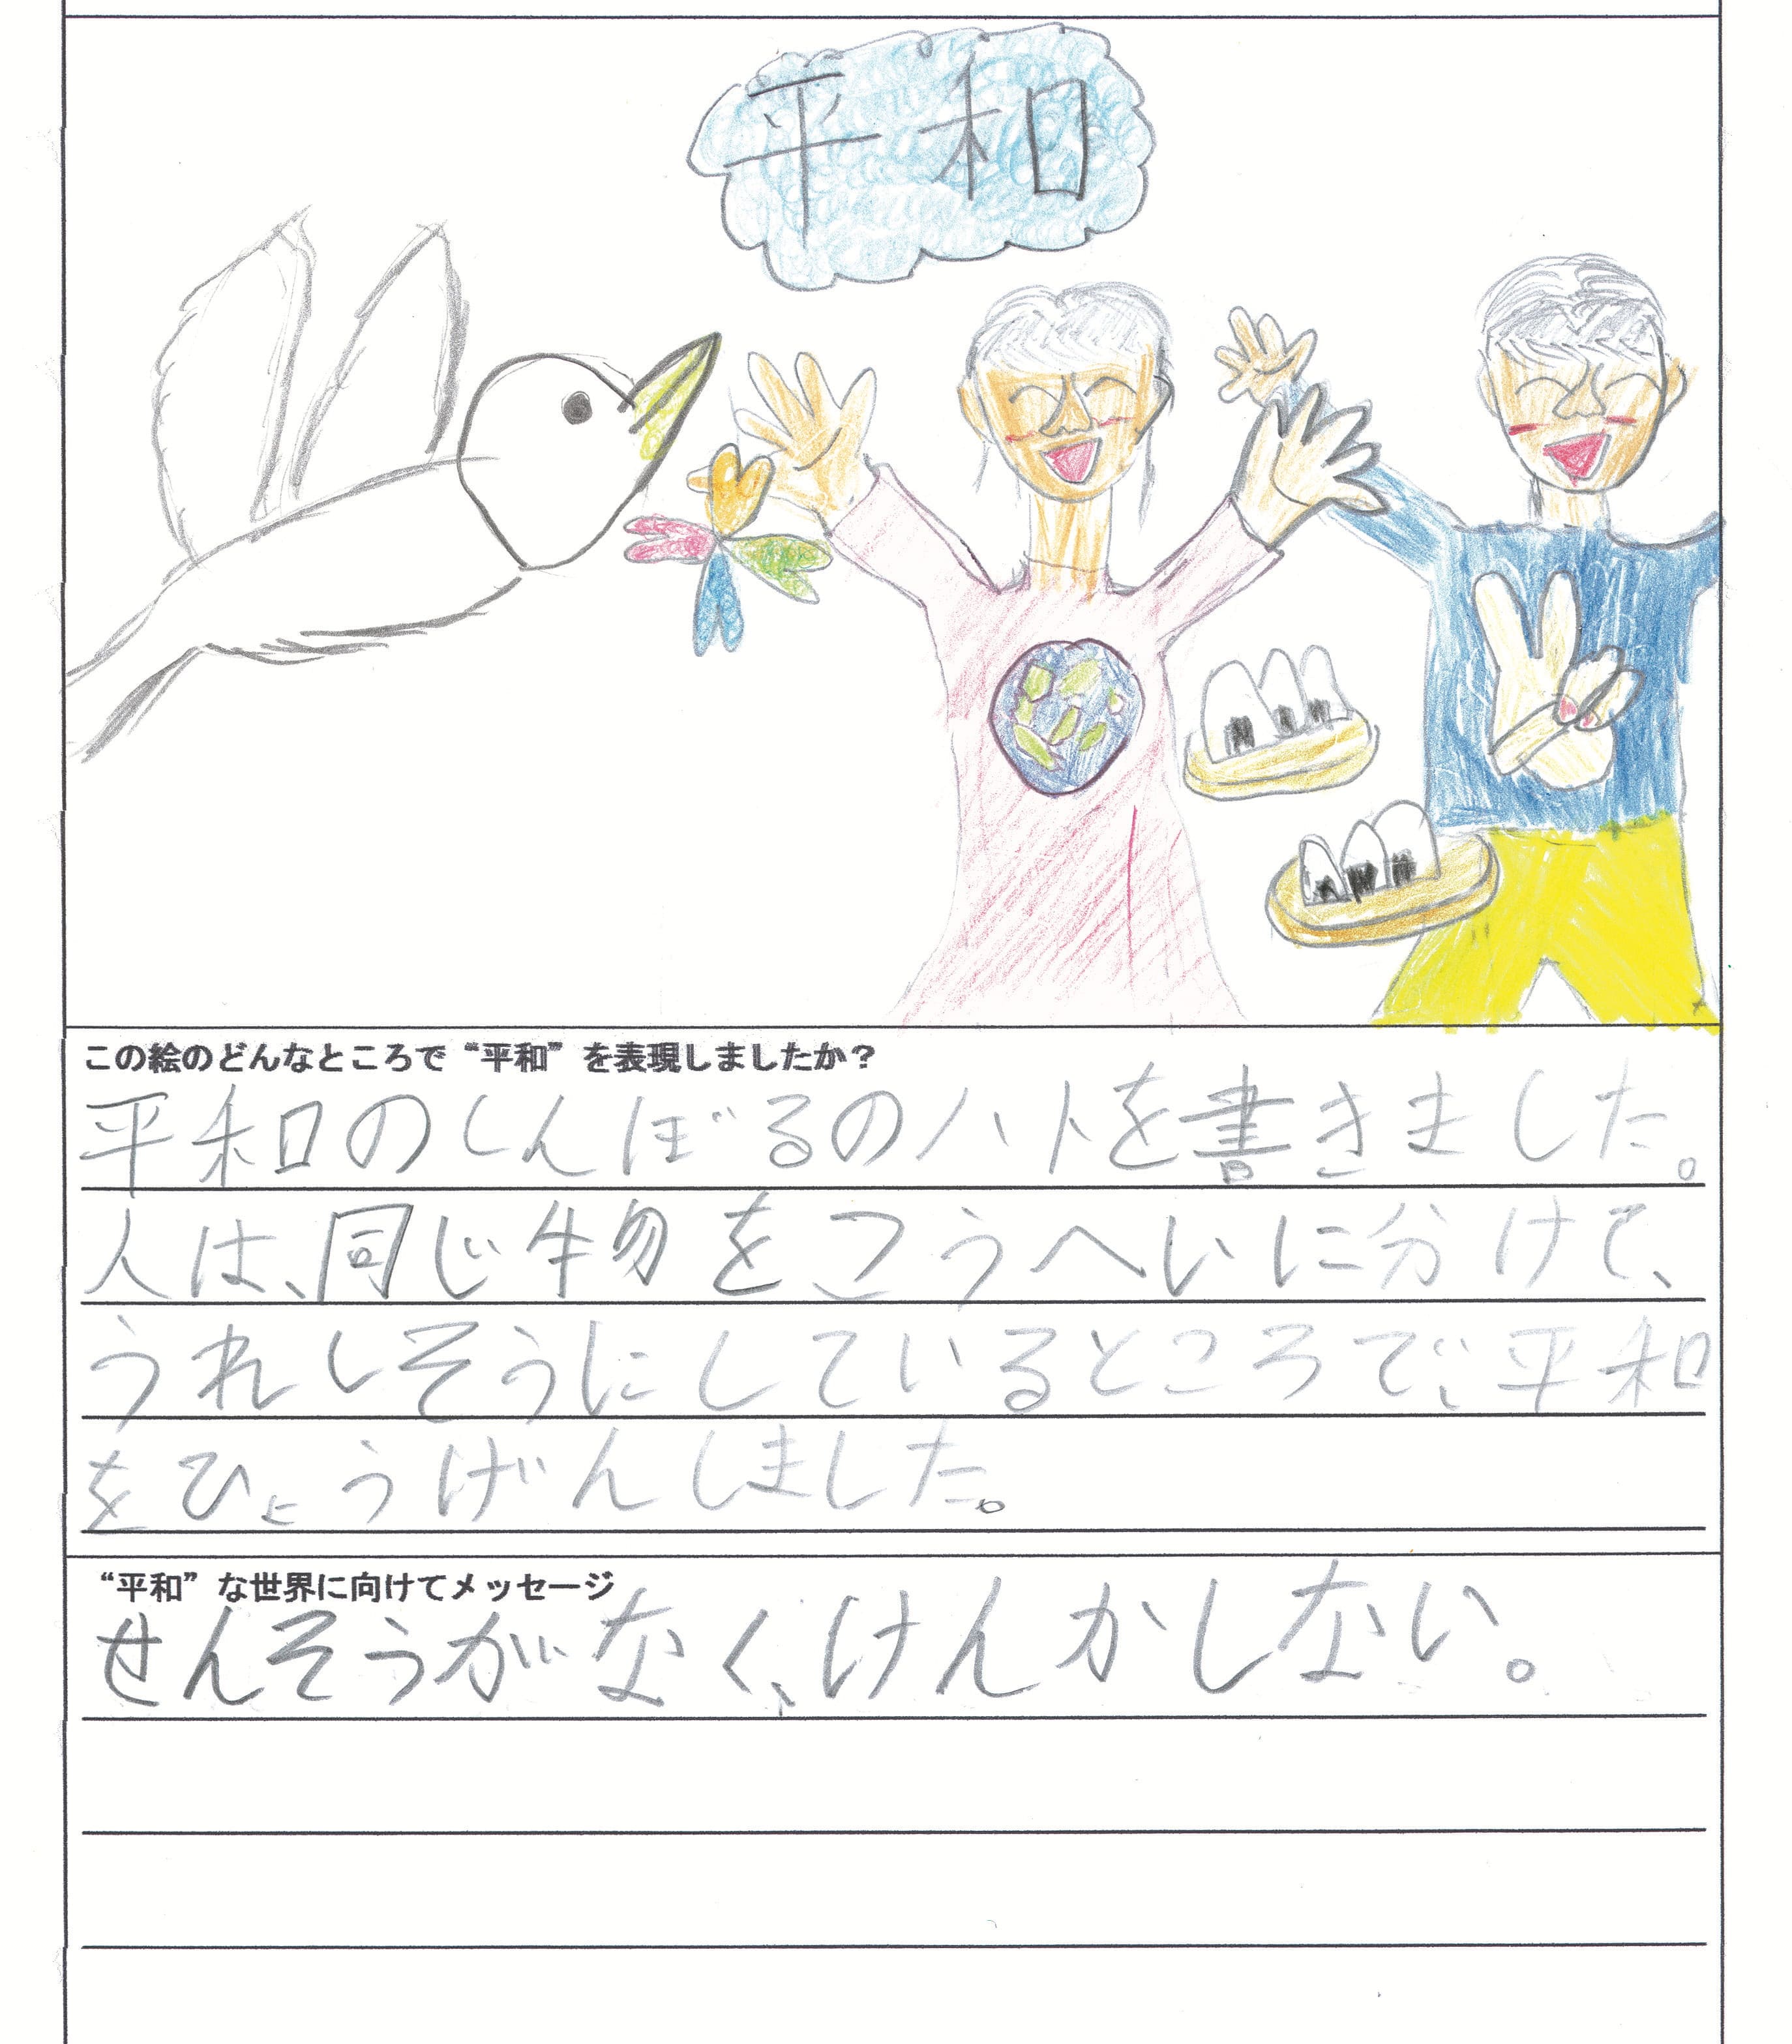 平和
この絵のどんなところで“平和”を表現しましたか？
平和のしんぼるのハトを書きました。
人は、同じ物をこうへいに分けて、
うれしそうにしているところで、平和
をひょうげんしました。
“平和”な世界に向けてメッセージ
せんそうがなく、けんかしない。